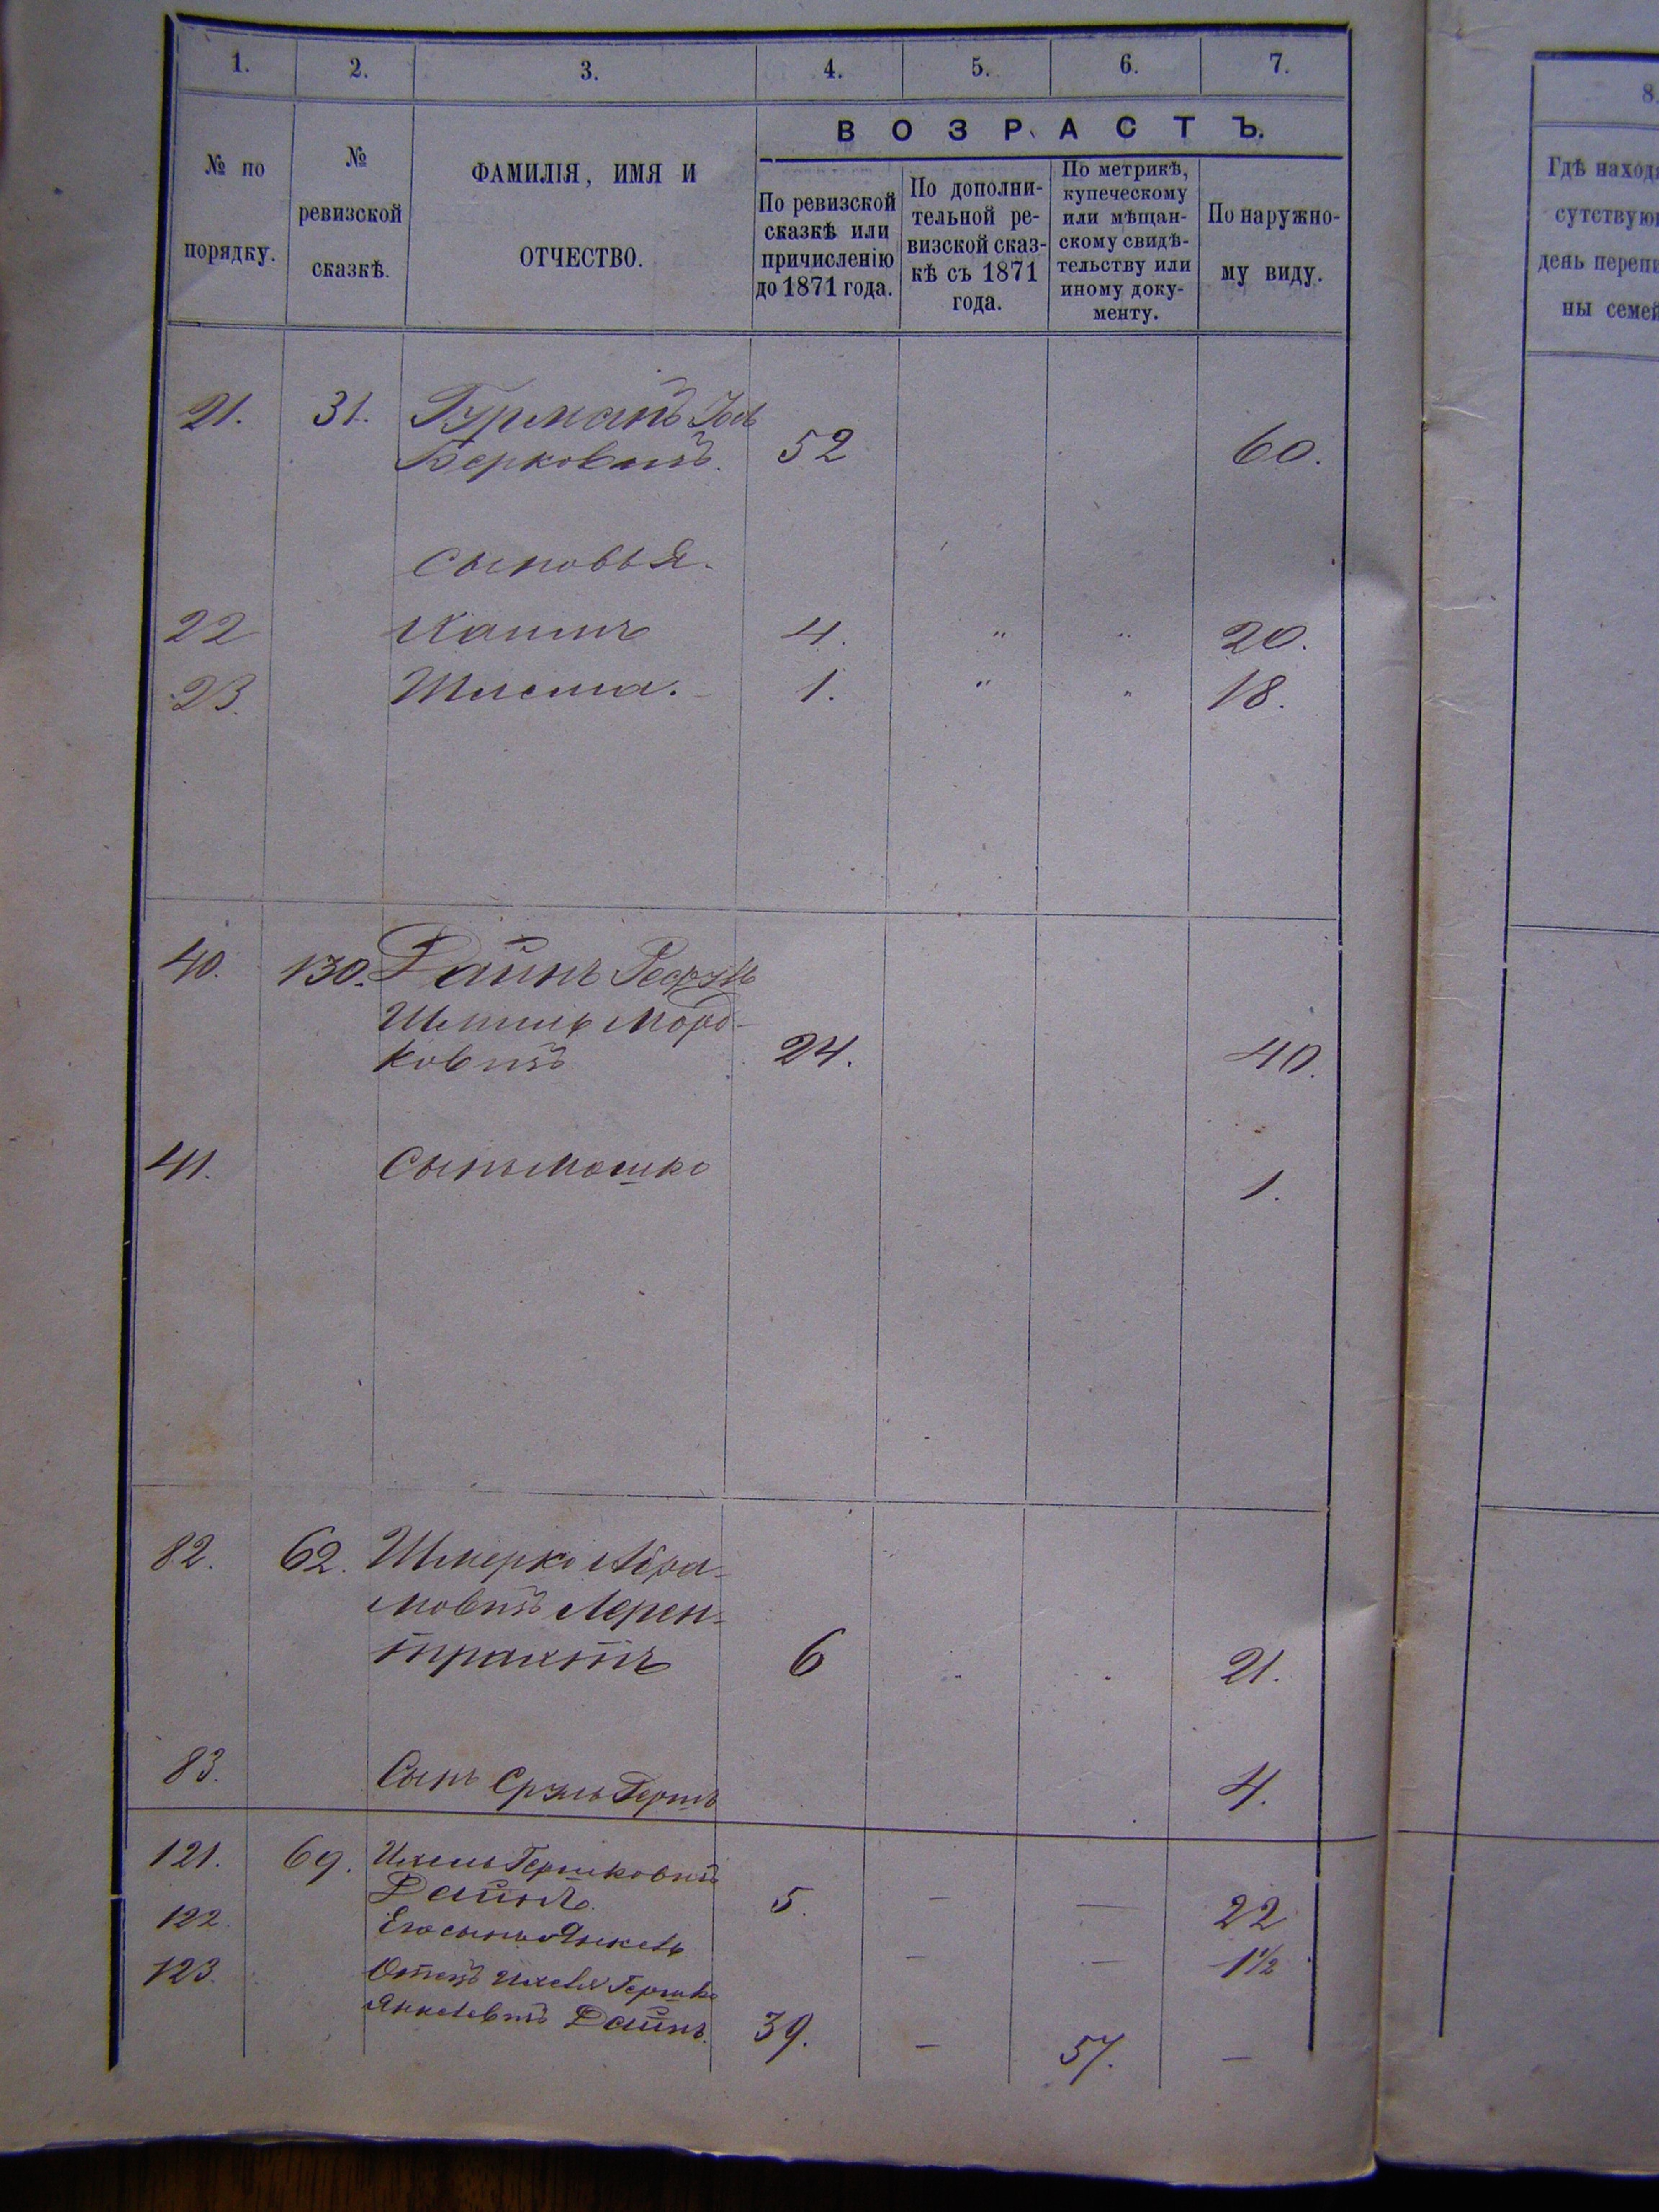 1. 2. 3. 4. 5. 6. 7.
ВОЗРАСТЪ.
№ по
порядку.
№
ревизской
сказкѣ.
ФАМИЛІЯ, ИМЯ И
ОТЧЕСТВО.
По ревизской
сказкѣ или
причисленію
до 1871 года.
По дополни-
тельной ре-
визской сказ-
кѣ съ 1871
года.
По метрикѣ,
купеческому
или мѣщан-
скому свидѣ-
тельству или
иному доку-
менту.
По наружно-
му виду.
21. 31. Гурманъ
Берковичъ. 52 60.
сыновья.
22 4. " " 20.
23. 1. " " 18.
40. 130. Дайнъ
Шмиль Морд-
ковичъ 24. 40.
41. Сынъ Мошко 1.
82. 62. Шмерко Абра-
мовичъ Лерен-
трахтъ 6 21.
83. Сынъ Сруль Гершъ 4.
121. 69. Ихель Гершковичъ
Дайнъ. 5. — — 22
122. Его сынъ Янкель — — 1½
123. Отецъ Ихеля Гершко
Янкелевичъ Дайнъ. 39. — 57. —
8.
Гдѣ наход
сутствую
день переп
ны семей